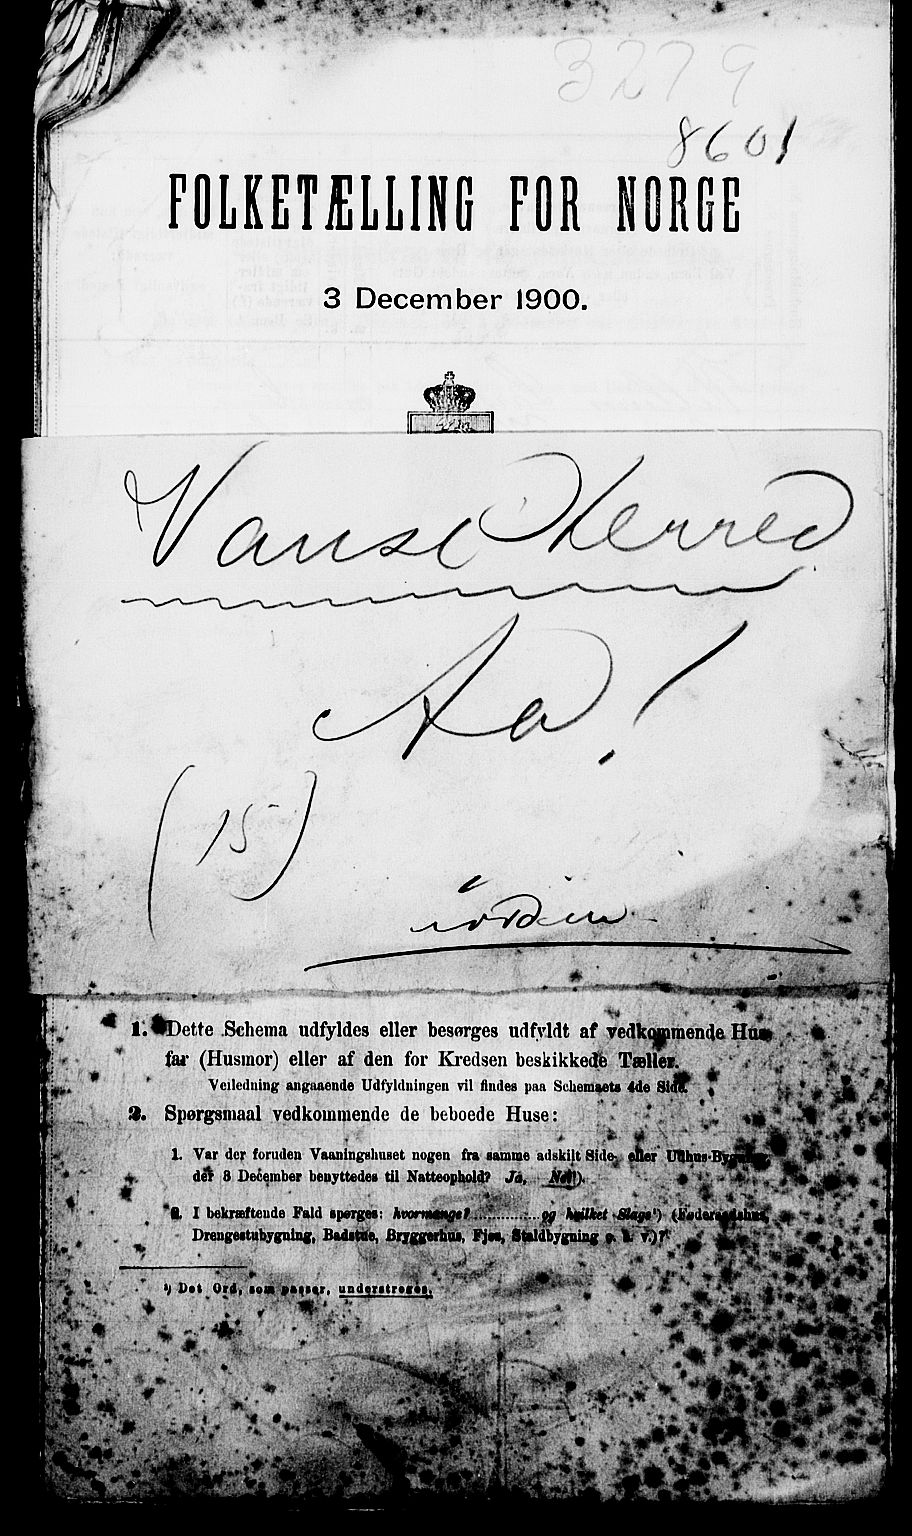 3279
8601
FOLKETÆLLING FOR NORGE
3 December 1900.
Vanse Herred
Aa!
(15)
iorden
1. Dette Schema udfyldes eller besørges udfyldt af vedkommende Hus-
far (Husmor) eller af den for Kredsen beskikkede Tæller.
Veiledning angaaende Udfyldningen vil findes paa Schemaets 4de Side.
2. Spørgsmaal vedkommende de beboede Huse:
1. Var der foruden Vaaningshuset nogen fra samme adskilt Side- eller Udhus-Bygning,
der 3 December benyttedes til Natteophold? Ja, Nei¹).
2. I bekræftende Fald spørges: hvormange? ............ og hvilket Slags¹) (Føderaadshus,
Drengestubygning, Badstue, Bryggerhus, Fjøs, Staldbygning o. s. v.)?
¹) Det Ord, som passer, understreges.